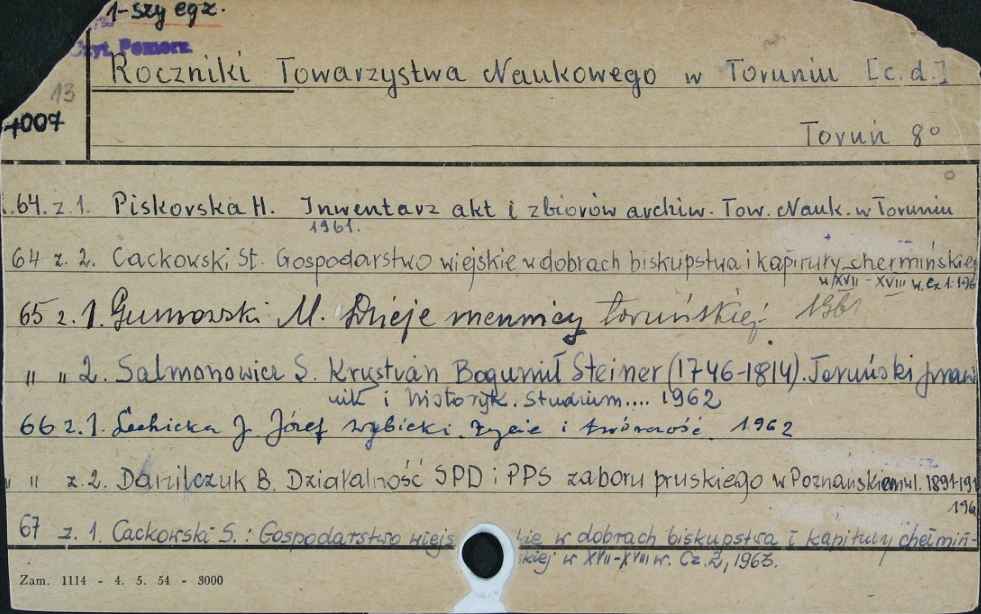 1-szy egz.
Czyt. Pomorz.
Roczniki Towarzystwa Naukowego w Toruniu [c.d.]
13
1007
Toruń 8°
64. z. 1. Piskorska H. Inwentarz akt i zbiorów archiw. Tow. Nauk. w Toruniu
1961.
64 z. 2. Cackowski St. Gospodarstwo wiejskie w dobrach biskupstwa i kapituły chermińskiej
w XVII - XVIII w. Cz 1. 196
65 z. 1. Gumowski M. Dzieje mennicy toruńskiej 1961
" " 2. Salmonowicz S. Krystian Bogumił Steiner (1746-1814). Toruński praw
nik i historyk. Studium.... 1962
66 z. 1. Lechicka J. Józef Wybicki. Życie i twórczość. 1962
" " z. 2. Danilczuk B. Działalność SPD i PPS zaboru pruskiego w Poznańskiem w l. 1891-191
196
67 z. 1. Cackowski S.: Gospodarstwo wiejs kie w dobrach biskupstwa i kapituły chełmiń-
skiej w XVII-XVIII w. Cz. 2, 1963.
Zam. 1114 - 4. 5. 54 - 3000